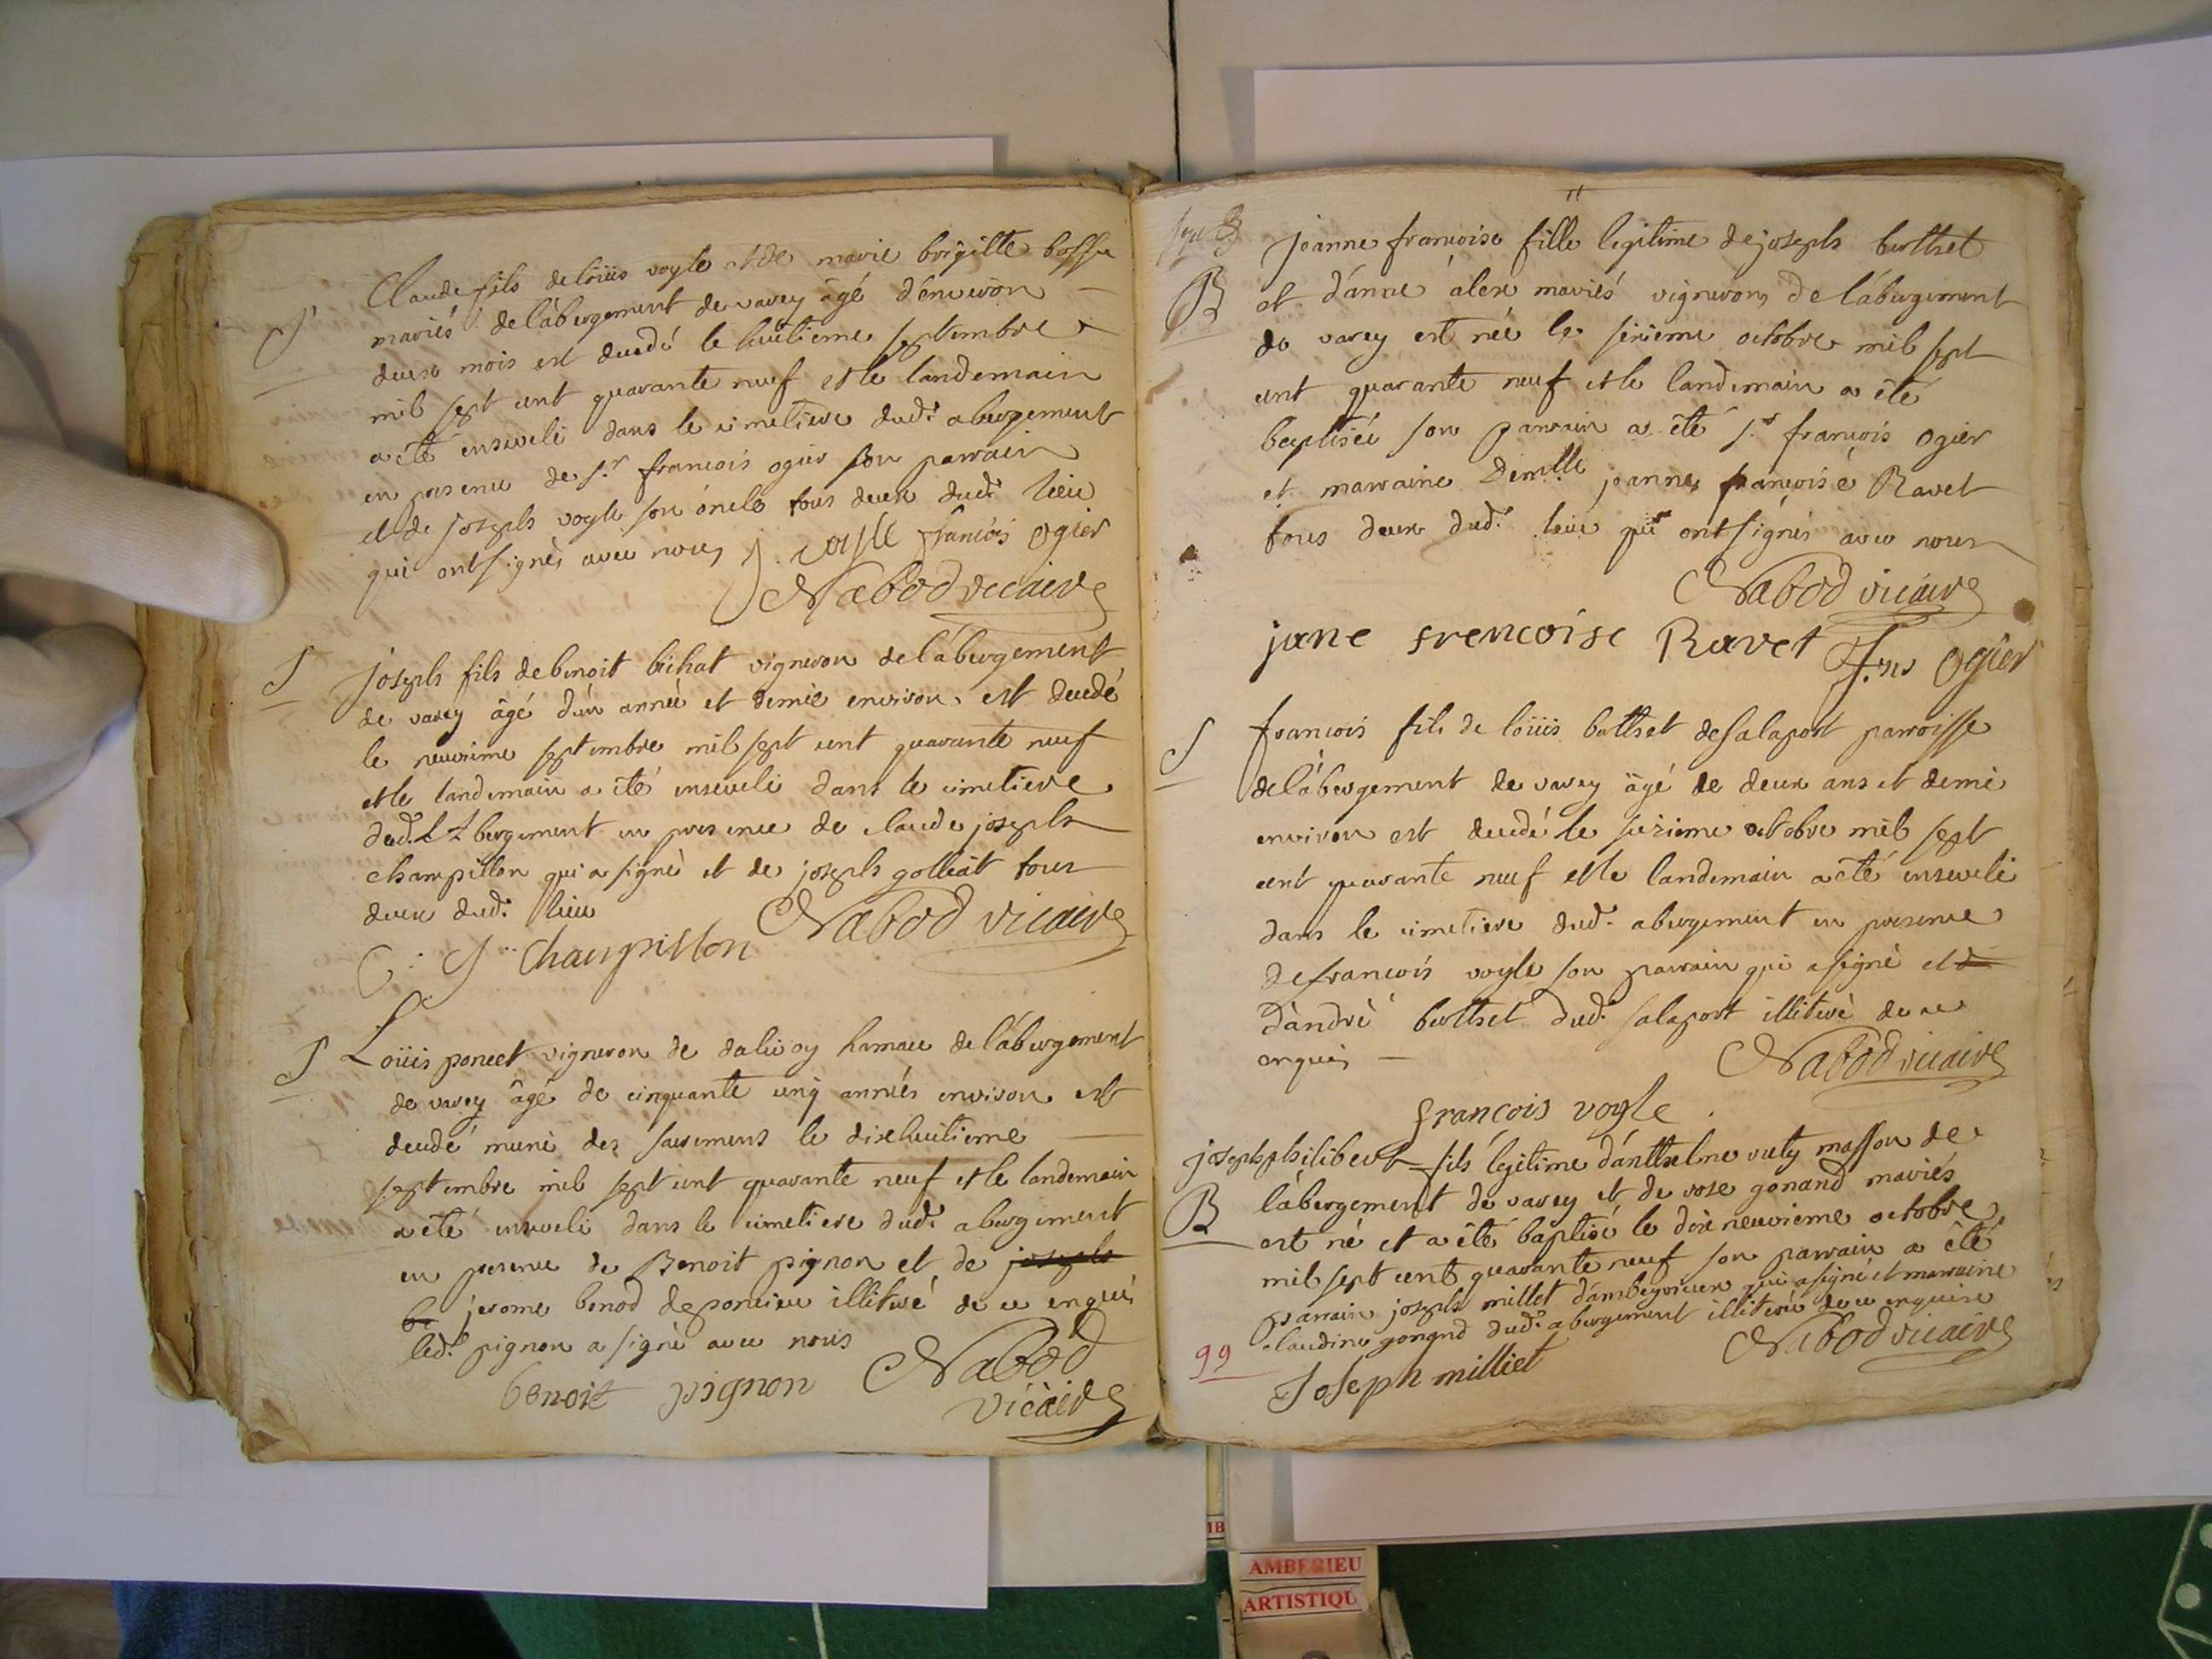 Claude fils de loüis voyle et de marie brigitte bossu
S
mariés de l'abergement de varey âgé d'environ
deux mois est decedé le huitieme septembre
mil sept cent quarante neuf et le landemain
a été enseveli dans le cimetiere dud. abergement
en presence de s.r francois ogier son parrain
et de joseph voyle son oncle tous deux dud. lieu
qui ont signés avec nous J. voyle francois Ogier
Nabod vicaire
S
joseph fils de benoit bichat vigneron de l'abergement
de varey âgé d'un année et demie environ est decedé
le neuvieme septembre mil sept cent quarante neuf
et le landemain a été enseveli dans le cimetiere
dud. abergement en presence de claude joseph
champillon qui a signé et de joseph golliat tous
deux dud. lieu
Nabod vicaire
C: J. Champillon
S
Loüis poncet vigneron de dalivoy hamau de l'abergement
de varey âgé de cinquante cinq années environ est
decedé muni des sacremens le dixhuitieme
septembre mil sept cent quarante neuf et le landemain
a été enseveli dans le cimetiere dud. abergement
en presence de Benoit pignon et de joseph
be jerome benod de poncieu illiteré de ce enquis
led. pignon a signé avec nous
Nabod
benoit pignon
vicaire
joanne francoise fille legitime de joseph berthet
B
et d'anne alex mariés vignerons de l'abergement
de varey est née le seizieme octobre mil sept
cent quarante neuf et le landemain a été
baptisée son parrain a été s.r francois ogier
et marraine Dem.lle joanne francoise Ravet
tous deux dud. lieu qui ont signés avec nous
Nabod vicaire
jane frencoise Ravet
F.ois Ogier
S
francois fils de loüis berthet de salaport parroisse
de l'abergement de varey âgé de deux ans et demi
environ est decedé le seizieme octobre mil sept
cent quarante neuf et le landemain a été enseveli
dans le cimetiere dud. abergement en presence
de francois voyle son parrain qui a signé et d
d'andré berthet dud. salaport illiteré de ce
enquis
Nabod vicaire
francois voyle
joseph philibert fils légitime d'anthelme vuty masson de
B
l'abergement de varey et de rose gonand mariés
est né et a été baptisé le dix neuvieme octobre
mil sept cent quarante neuf son parrain a été
parrain joseph millet d'ambeyrieux qui a signé et marraine
claudine gonand dud. abergement illiterée de ce enquise
99
Nabod vicaire
Joseph milliet
AMBERIEU
ARTISTIQU